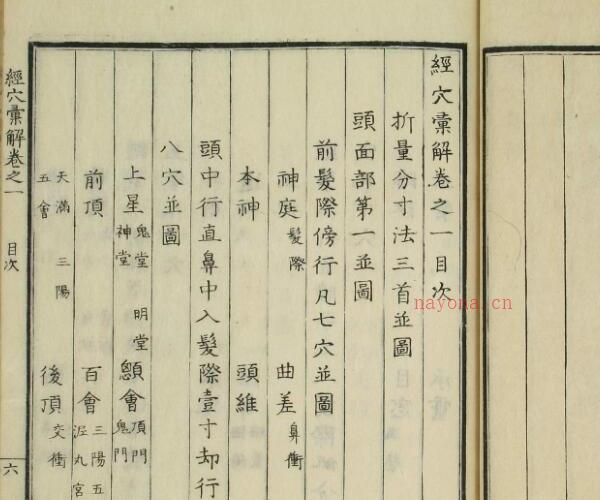 經穴彙解卷之一目次
折量分寸法三首並圖
頭面部第一並圖
前髮際傍行凡七穴並圖
神庭 髮際 曲差 鼻衝
本神 頭維
頭中行直鼻中入髮際壹寸却行
八穴並圖
上星 鬼堂 明堂 神堂 顖會 頂門 鬼門
前頂 百會 三陽五 泥丸宮
天滿 三陽 五會 後頂 交衝
經穴彙解卷之一 目次 六
nayona.cn